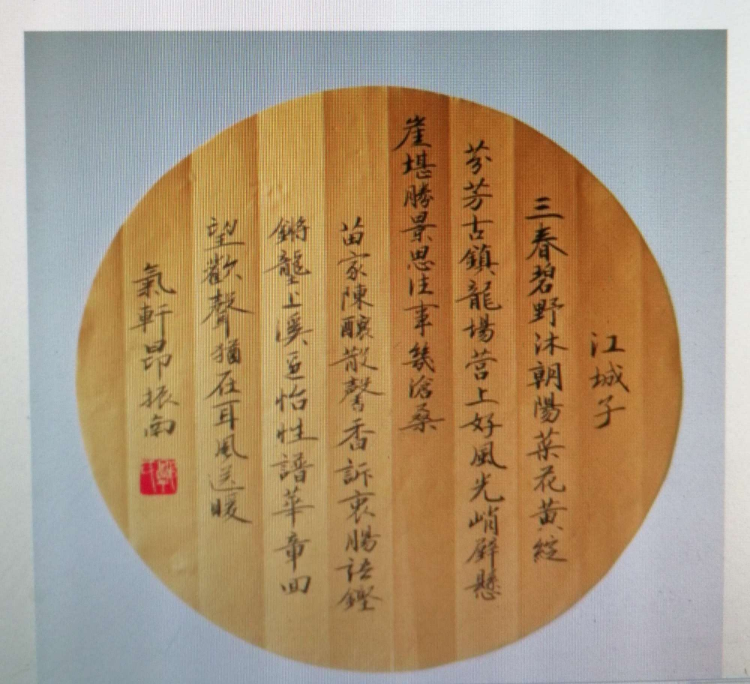 江城子
三春碧野沐朝陽菜花黄綻
芬芳古鎮龍場营上好風光峭壁懸
崖堪勝景思往事幾滄桑
苗家陳釀散馨香訴衷腸語鏗
鏘壟上溪邊怡性譜華章回
望歡聲猶在耳風送暖
氣軒昂振南